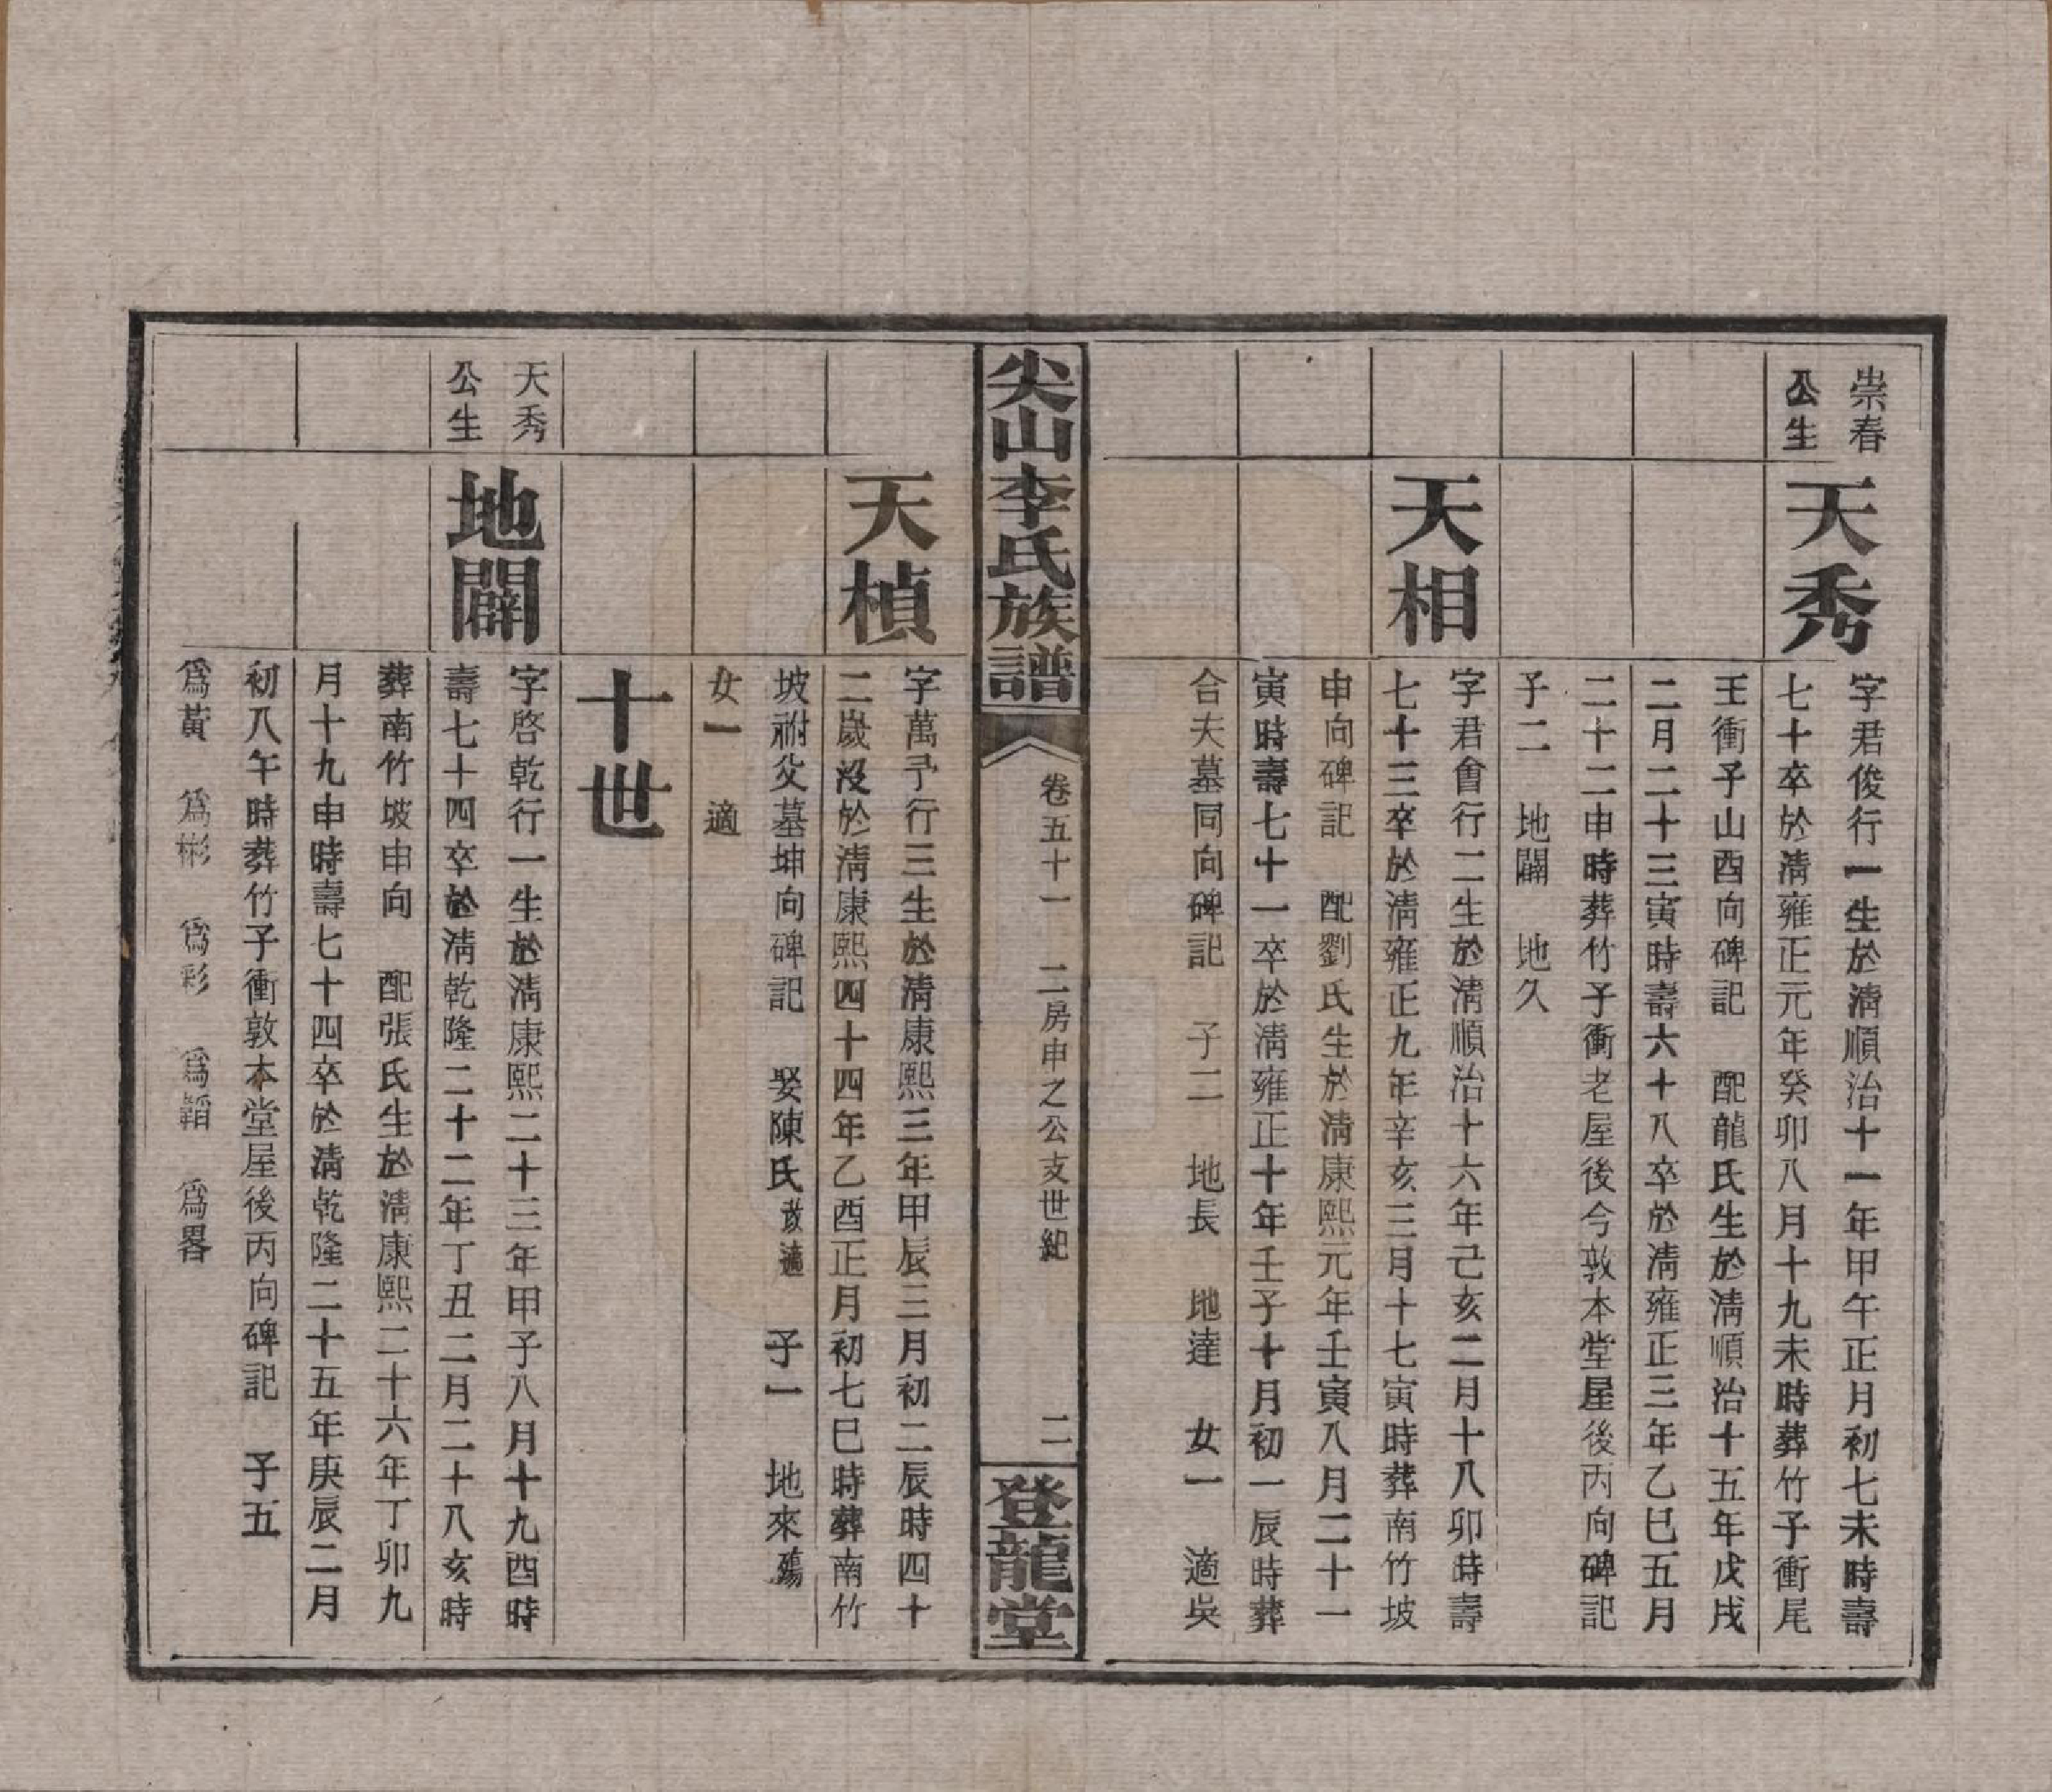 崇春
公生
天秀
字君俊行一生於清順治十一年甲午正月初七未時壽
七十卒於清雍正元年癸卯八月十九未時葬竹子衝尾
王衝子山酉向碑記 配龍氏生於清順治十五年戊戌
二月二十三寅時壽六十八卒於清雍正三年乙巳五月
二十二申時葬竹子衝老屋後今敦本堂屋後丙向碑記
子二 地闢 地久
天相
字君會行二生於清順治十六年己亥二月十八卯時壽
七十三卒於清雍正九年辛亥三月十七寅時葬南竹坡
申向碑記 配劉氏生於清康熙元年壬寅八月二十一
寅時壽七十一卒於清雍正十年壬子十月初一辰時葬
合夫墓同向碑記 子二 地長 地達 女一 適吳
尖山李氏族譜
卷五十一 二房申之公支世紀 二
登龍堂
天楨
字萬予行三生於清康熙三年甲辰三月初二辰時四十
二歲沒於清康熙四十四年乙酉正月初七巳時葬南竹
坡祔父墓坤向碑記 娶陳氏改適 子一 地來殤
女一 適
十世
天秀
公生
地闢
字啓乾行一生於清康熙二十三年甲子八月十九酉時
壽七十四卒於清乾隆二十二年丁丑二月二十八亥時
葬南竹坡申向 配張氏生於清康熙二十六年丁卯九
月十九申時壽七十四卒於清乾隆二十五年庚辰二月
初八午時葬竹子衝敦本堂屋後丙向碑記 子五
爲黃 爲彬 爲彩 爲韜 爲畧